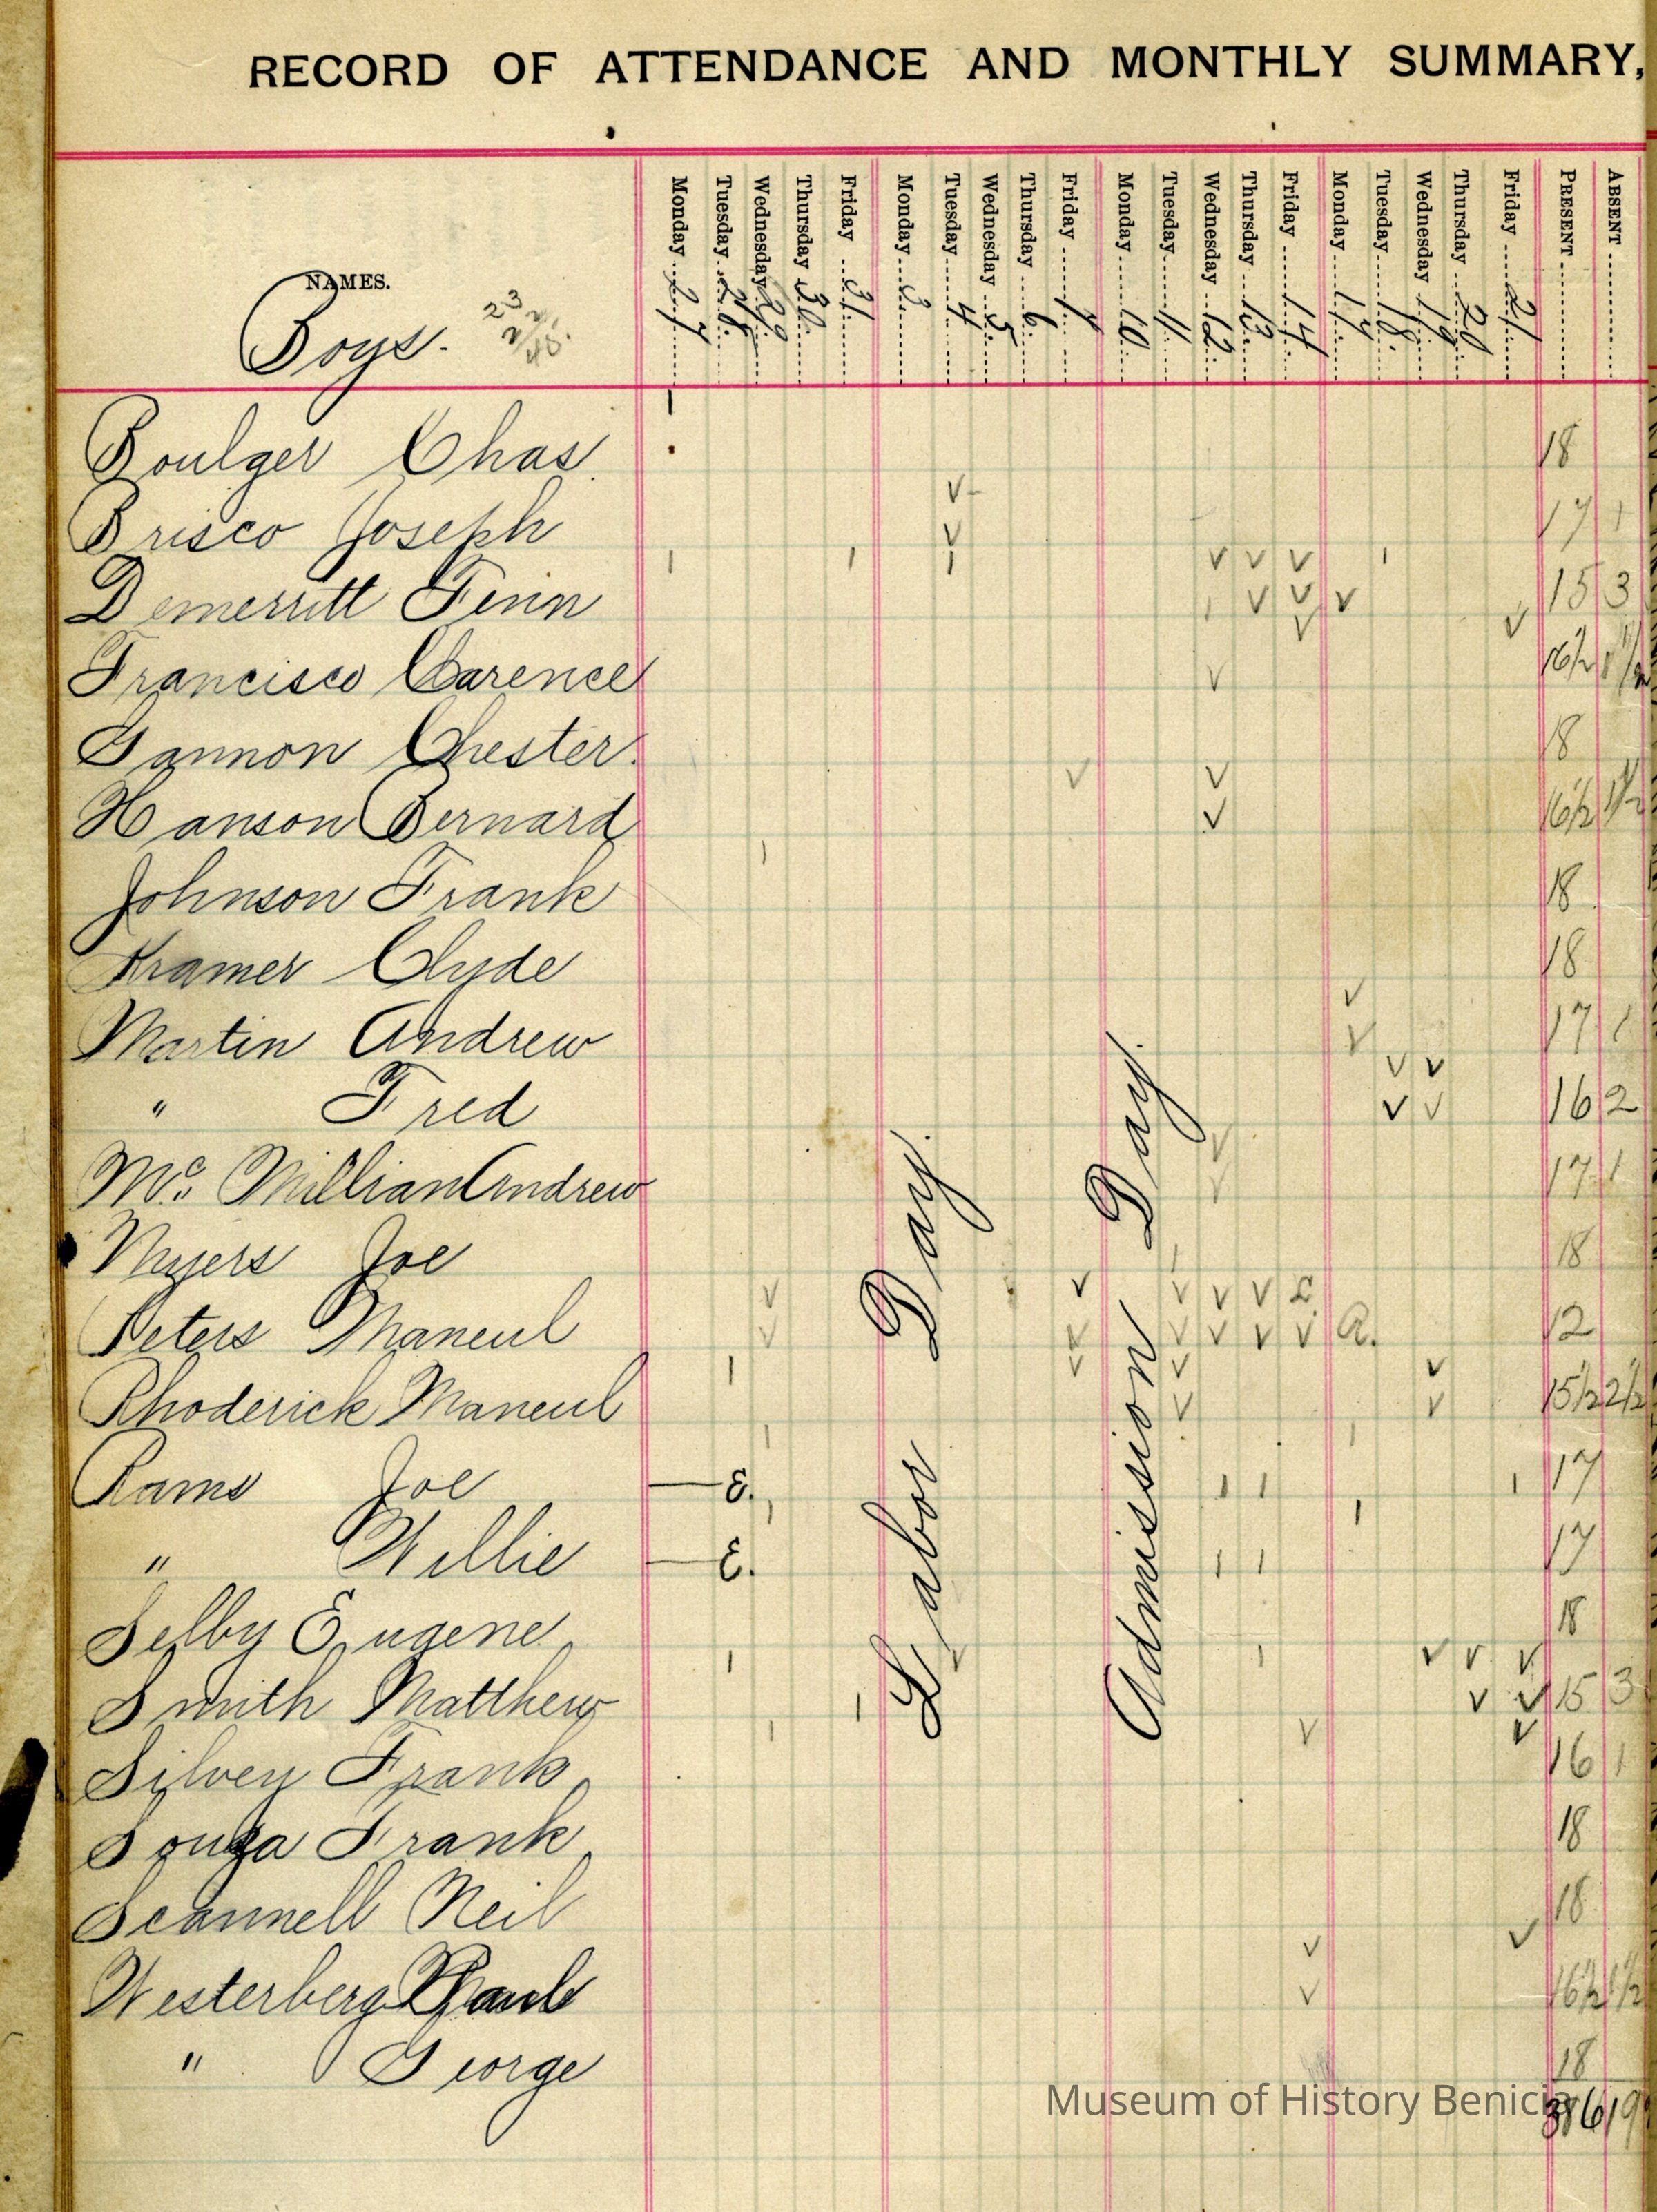 RECORD OF ATTENDANCE AND MONTHLY SUMMARY,
NAMES.
Boys.
23
22
45.
Monday 27
Tuesday 28
Wednesday 29
Thursday 30
Friday 31
Monday 3
Tuesday 4
Wednesday 5
Thursday 6
Friday 7
Monday 10
Tuesday 11
Wednesday 12
Thursday 13
Friday 14
Monday 17
Tuesday 18
Wednesday 19
Thursday 20
Friday 21
PRESENT
ABSENT
Boulger Chas. 18
Brisco Joseph 17 1
Demerritt Fenn 15 3
Francisco Clarence 16½ 1½
Gannon Chester. 18
Hanson Bernard 16½ 1½
Johnson Frank 18
Kramer Clyde 18
Martin Andrew 17 1
" Fred 16 2
Mc. Millian Andrew 17 1
Myers Joe 18
Peters Maneul L R. 12
Rhoderick Maneul 15½ 2½
Rams Joe E. 17
" Willie E. 17
Selby Eugene 18
Smith Matthew 15 3
Silvey Frank 16 1
Souza Frank 18
Scannell Neil 18
Westerberg Paul 16½ 1½
" George 18
386 19
Labor Day.
Admission Day.
Museum of History Benicia